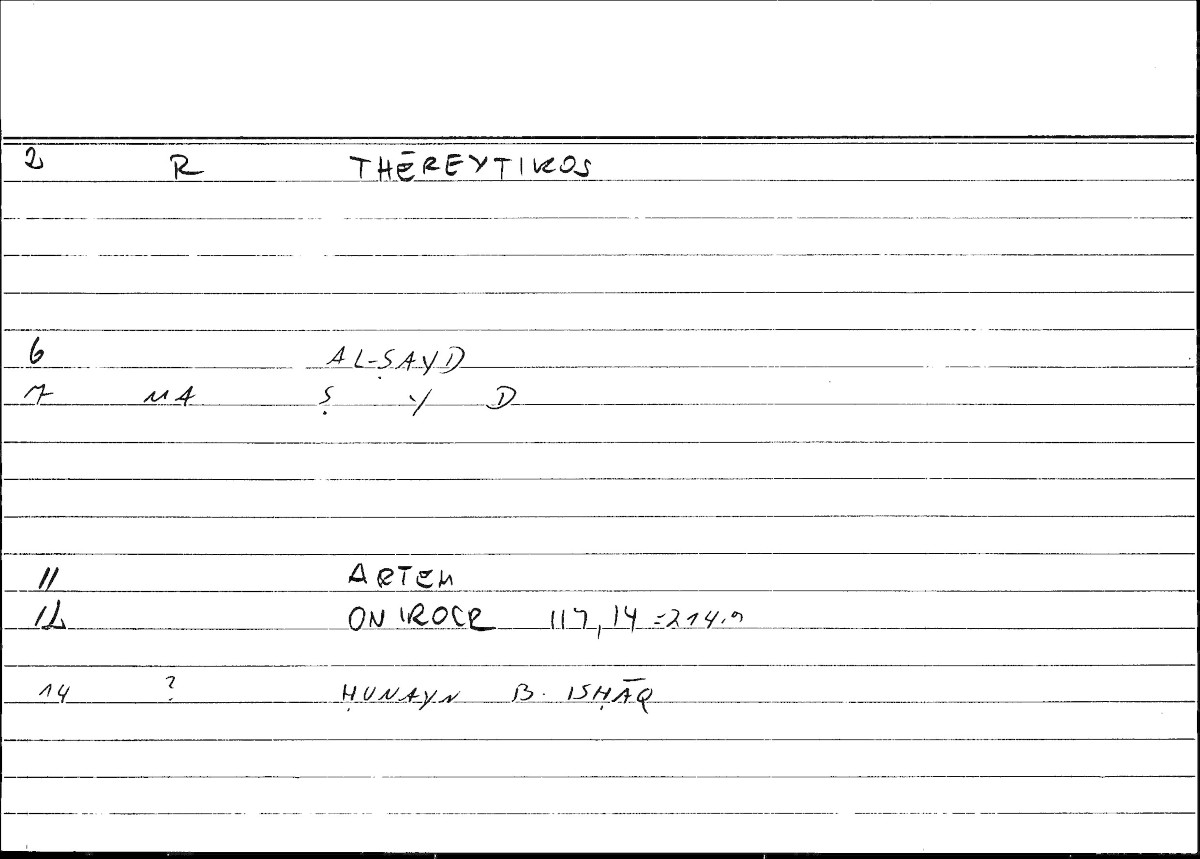 2 R THĒREYTIKOS
6 AL-ṢAYD
7 MA Ṣ Y D
11 ARTEM
12 ONIROCR 117,14 =214.9
14 ? ḤUNAYN B. ISḤĀQ